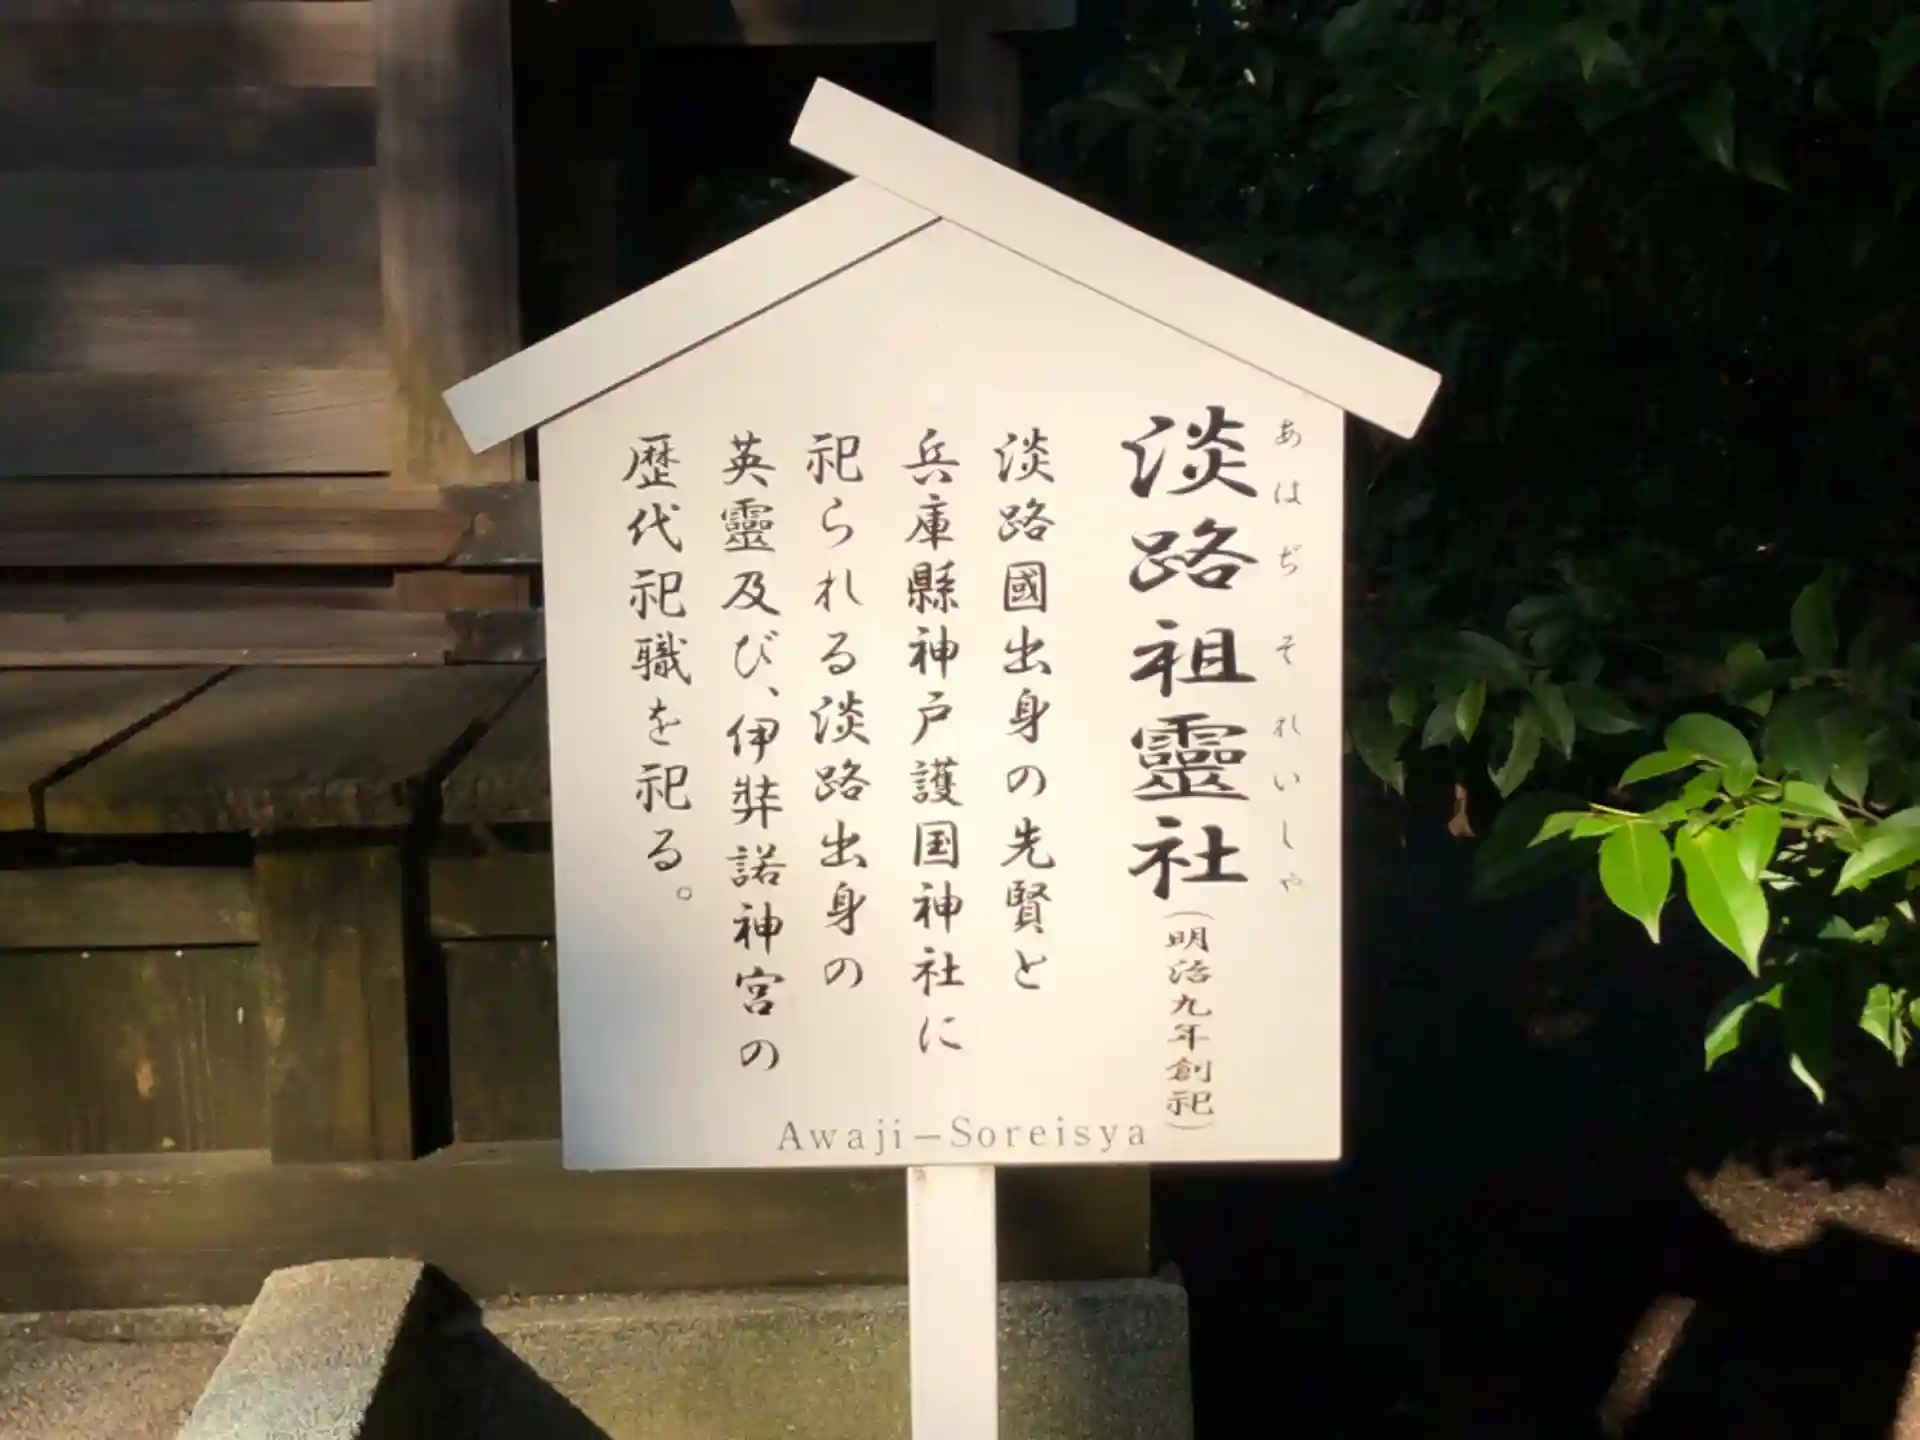 あはぢそれいしゃ
淡路祖靈社（明治九年創祀）
淡路國出身の先賢と
兵庫縣神戸護国神社に
祀られる淡路出身の
英靈及び、伊弉諾神宮の
歴代祀職を祀る。
Awaji－Soreisya